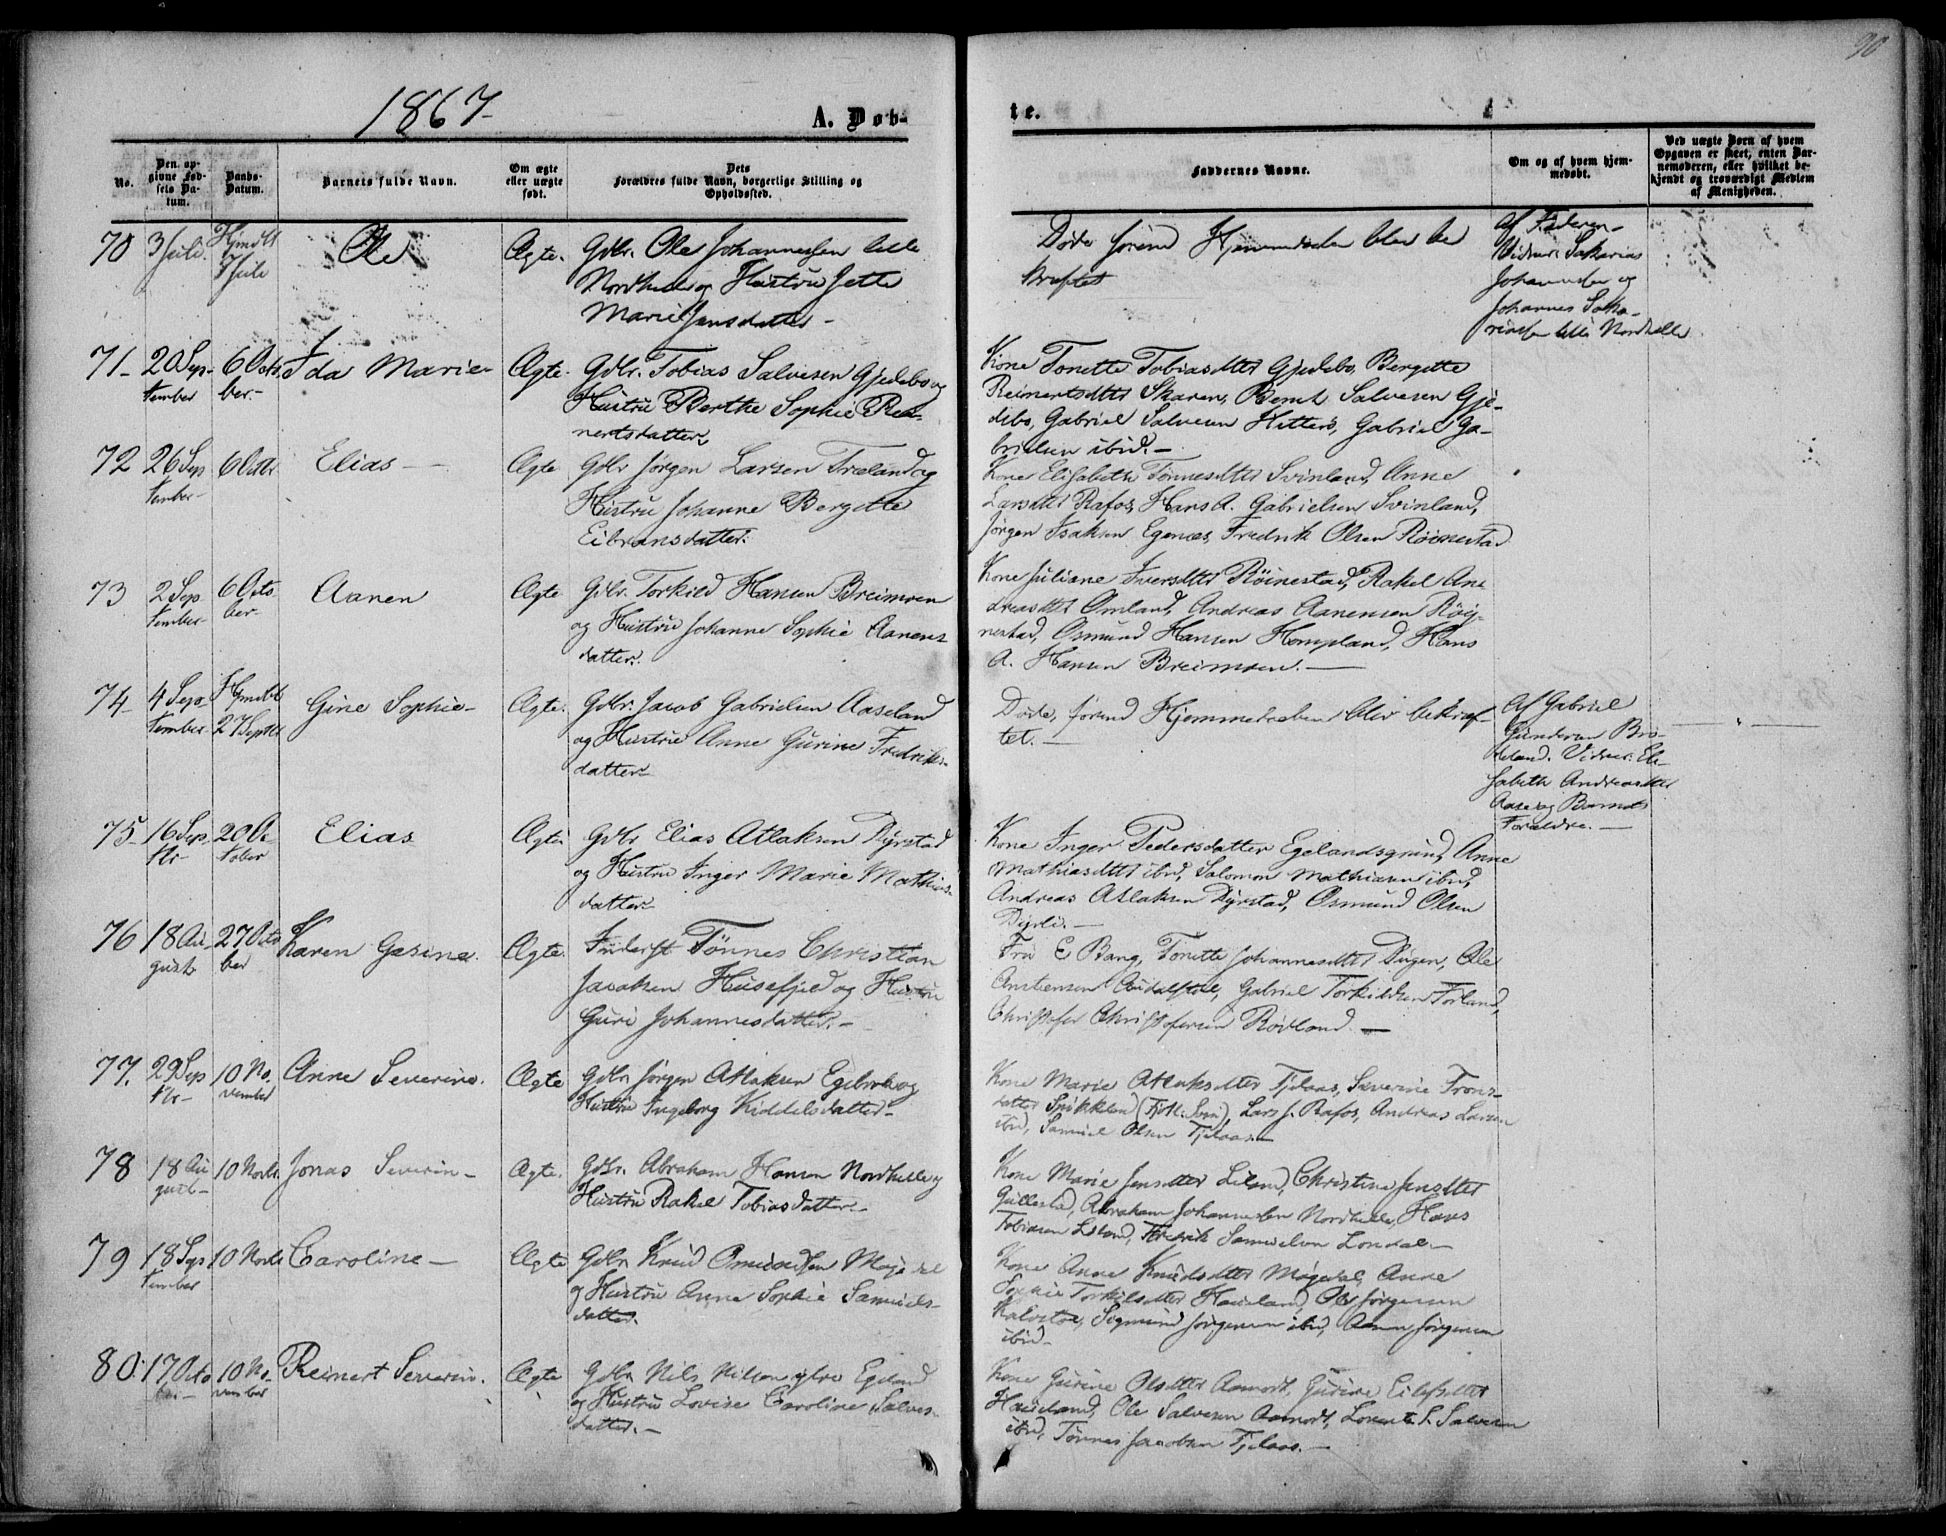 90
1867
A. Døb-
te.
No.
Den opgivne Fødsels Datum.
Daabs-Datum.
Barnets fulde Navn.
Om ægte eller uægte født.
Dets Forældres fulde Navn, borgerlige Stilling og Opholdssted.
Faddernes Navne.
Om og af hvem hjemmedøbt.
Ved uægte Børn af hvem Opgaven er skeet, enten Barnemoderen, eller hvilket bekjendt og troværdigt Medlem af Menigheden.
70 3 Juli. Hjmdbt 7 Juli Ole Ægte. Gdbr. Ole Johannessen lille
Nordhelle og Hustru Jette
Marie Jensdatter -
Døde førend Hjemmedaaben blev be
kræftet
Af Faderen-
Vidner: Sakarias
Johannesen og
Johannes Saka-
riassen lille Nordhelle
71- 20 Sep-tember 6 Octo-ber.- Ida Marie- Ægte. Gdbr. Tobias Salvesen Gjedebo og
Hustru Berthe Sophie Rei-
nertsdatter.
Kone Tonette Tobiasdtter Gjedebo, Bergitte
Reinertsdtter Skaren, Bernt Salvesen Gje-
debo, Gabriel Salvesen Hitterø, Gabriel Ga-
brielsen ibid.-
72 26 Sep-tember- 6 Octbr. Elias - Ægte Gdbr Jørgen Larsen Træland og
Hustru Johanne Bergitte
Eibransdatter.
Kone Elisabeth Tønnesdtter Svinland, Anne
Larsdtter Rafos, Hans A. Gabrielsen Svinland,
Jørgen Isaksen Egenæs, Fredrik Olsen Røinestad
73 2 Sep-tember- 6 Octo-ber- Aanen Ægte Gdbr. Torkild Hansen Breimoen
og Hustru Johanne Sophie Aanens
datter.
Kone Juliane Iversdtter Røinestad, Rakel An-
dreasdtter Omland, Andreas Aanensen Røi-
nestad, Osmund Hansen Hompland, Hans
A. Hansen Breimoen. -
74- 4 Sep-tember- Hjmdbt 27 Septbr Gine Sophie- Ægte. Gdbr. Jacob Gabrielsen Aaseland
og Hustru Anne Gurine Fredriks-
datter-
Døde, førend Hjemmedaaben blev bekræf-
tet. -
Af Gabriel
Gundersen
Vidner: Eli-
sabeth Andreasdtter
Aase og Barnets
Forældre. -
75- 16 Sep.tbr- 20 Oc-tober Elias Ægte Gdbr Elias Atlaksen Dyrstad
og Hustru Inger Marie Mathias-
datter-
Kone Inger Pedersdatter Egelandsgrund, Anne
Mathiasdtter ibid, Salomon Mathiasen ibid,
Andreas Atlaksen Dyrstad, Osmund Olsen
Dyrli. -
76 18 Au-gust 27 Octo-ber Karen Gesine. Ægte. Tønnes Christian
Jacobsen Husefjeld og Hustru
Guri Johannesdatter. -
Fru E Bang, Tonette Johannesdtter Dugen, Ole
Gabriel Torkildsen Forland,
Christofer Christofersen Rødland. -
77. 29 Sep-tbr- 10 No-vember Anne Severine. Ægte Gdbr. Jørgen Atlaksen Egebrok og
Hustru Ingeborg Kiddelsdatter-
Kone Marie Atlaksdtter Tjelaas, Severine Frons-
datter Lars J. Rafos, Andreas Larsen
ibid, Samuel Olsen Tjelaas. -
78 18 Au-gust- 10 Novbr. Jonas Severin - Ægte. Gdbr. Abraham Hansen Nordhelle og
Hustru Rakel Tobiasdatter. -
Kone Marie Jensdtter Liland, Christine Jensdtter
Gullestad, Abraham Johannesen Nordhelle, Hans
Tobiasen Liland, Fredrik Samuelsen Londal. -
79 18 Sep-tember 10 Novbr Caroline - Ægte Gdbr. Knud Osmundsen Møgedal
og Hustru Anne Sophie Samuels-
datter.
Kone Anne Knudsdtter Møgedal, Anne
Sophie Torkilsdtter Haueland, Ole Jørgensen
Kalvetoe, Sigmund Jørgensen ibid, Aanen Jørgensen
ibid-
80. 17 Octo-ber- 10 No-vember Reinert Severin. Ægte Gdbr. Nils Nilsen øvre Egeland
og Hustru Lovise Caroline Salves-
datter. -
Kone Gurine Olsdtter Aamodt, Gurine Eilefsdtter
Haueland, Ole Salvesen Aamodt, Lorents S. Salvesen
ibid, Tønnes Jacobsen Tjelaas. -